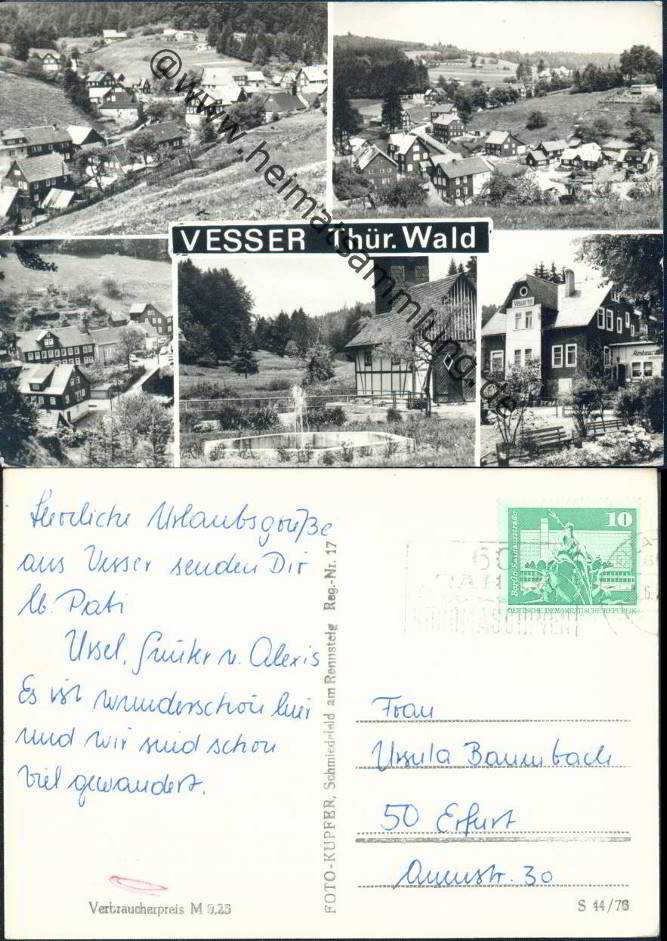 @www.heimatsammlung.de
VESSER Thür. Wald
Herzliche Urlaubsgrüße
aus Vesser senden Dir
lb. Pati
Ursel, Günter u. Alexis
Es ist wunderschön hier
und wir sind schon
viel gewandert.
FOTO-KUPFER, Schmiedefeld am Rennsteig Reg.-Nr. 17
10
Berlin-Rathausstraße
DEUTSCHE DEMOKRATISCHE REPUBLIK
BÜROMASCHINEN
Frau
Ursula Baumbach
50 Erfurt
Annnstr. 30
Verbraucherpreis M 0,25
S 44/76